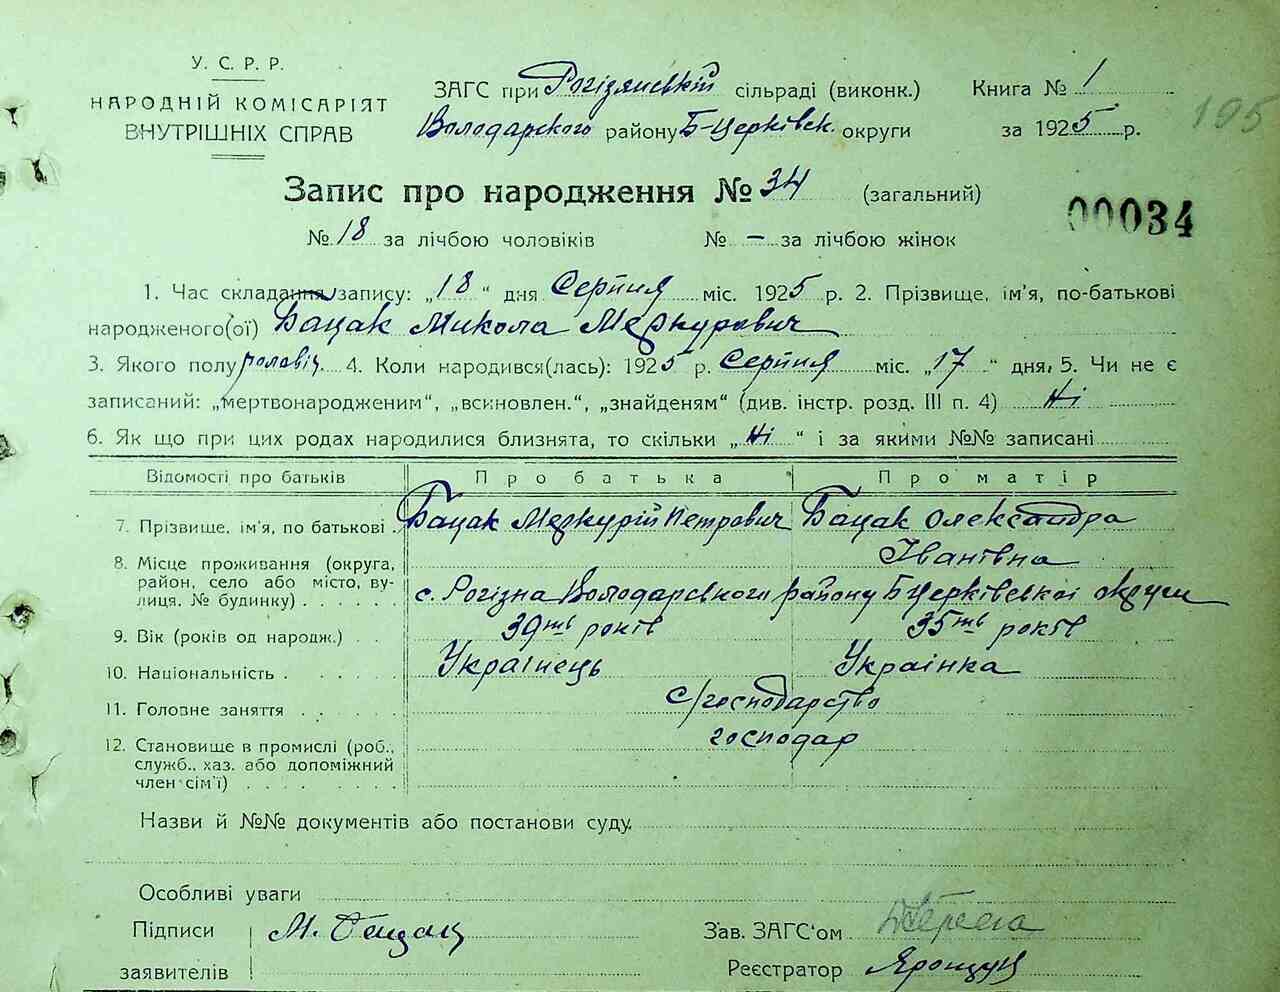 У. С. Р. Р.
НАРОДНІЙ КОМІСАРІЯТ
ВНУТРІШНІХ СПРАВ
ЗАГС при Рогізянській сільраді (виконк.) Книга № 1
Володарского району Б-Церківськ. округи за 1925 р.
195
Запис про народження № 34 (загальний)
00034
№ 18 за лічбою чоловіків № — за лічбою жінок
1. Час складання запису: „18“ дня Серпня міс. 1925 р. 2. Прізвище, ім'я, по-батькові
народженого(ої) Бацак Микола Меркурович
3. Якого полу чоловіч. 4. Коли народився(лась): 1925 р. Серпня міс. „17“ дня, 5. Чи не є
записаний: „мертвонародженим“, „всиновлен.“, „знайденям“ (див. інстр. розд. III п. 4) Ні
6. Як що при цих родах народилися близнята, то скільки „Ні“ і за якими №№ записані
Відомості про батьків Про батька Про матір
7. Прізвище, ім'я, по батькові Бацак Меркурій Петрович Бацак Олександра
Іванівна
8. Місце проживання (округа,
район, село або місто, ву-
лиця, № будинку) с. Рогізна Володарського району Б Церківської округи
9. Вік (років од народж.) 39ть років 35ть років
10. Національність Українець Українка
11. Головне заняття с/господарство
12. Становище в промислі (роб., господар
служб., хаз. або допоміжний
член сім'ї)
Назви й №№ документів або постанови суду
Особливі уваги
Підписи М. Бацак Зав. ЗАГС'ом
заявителів Реєстратор